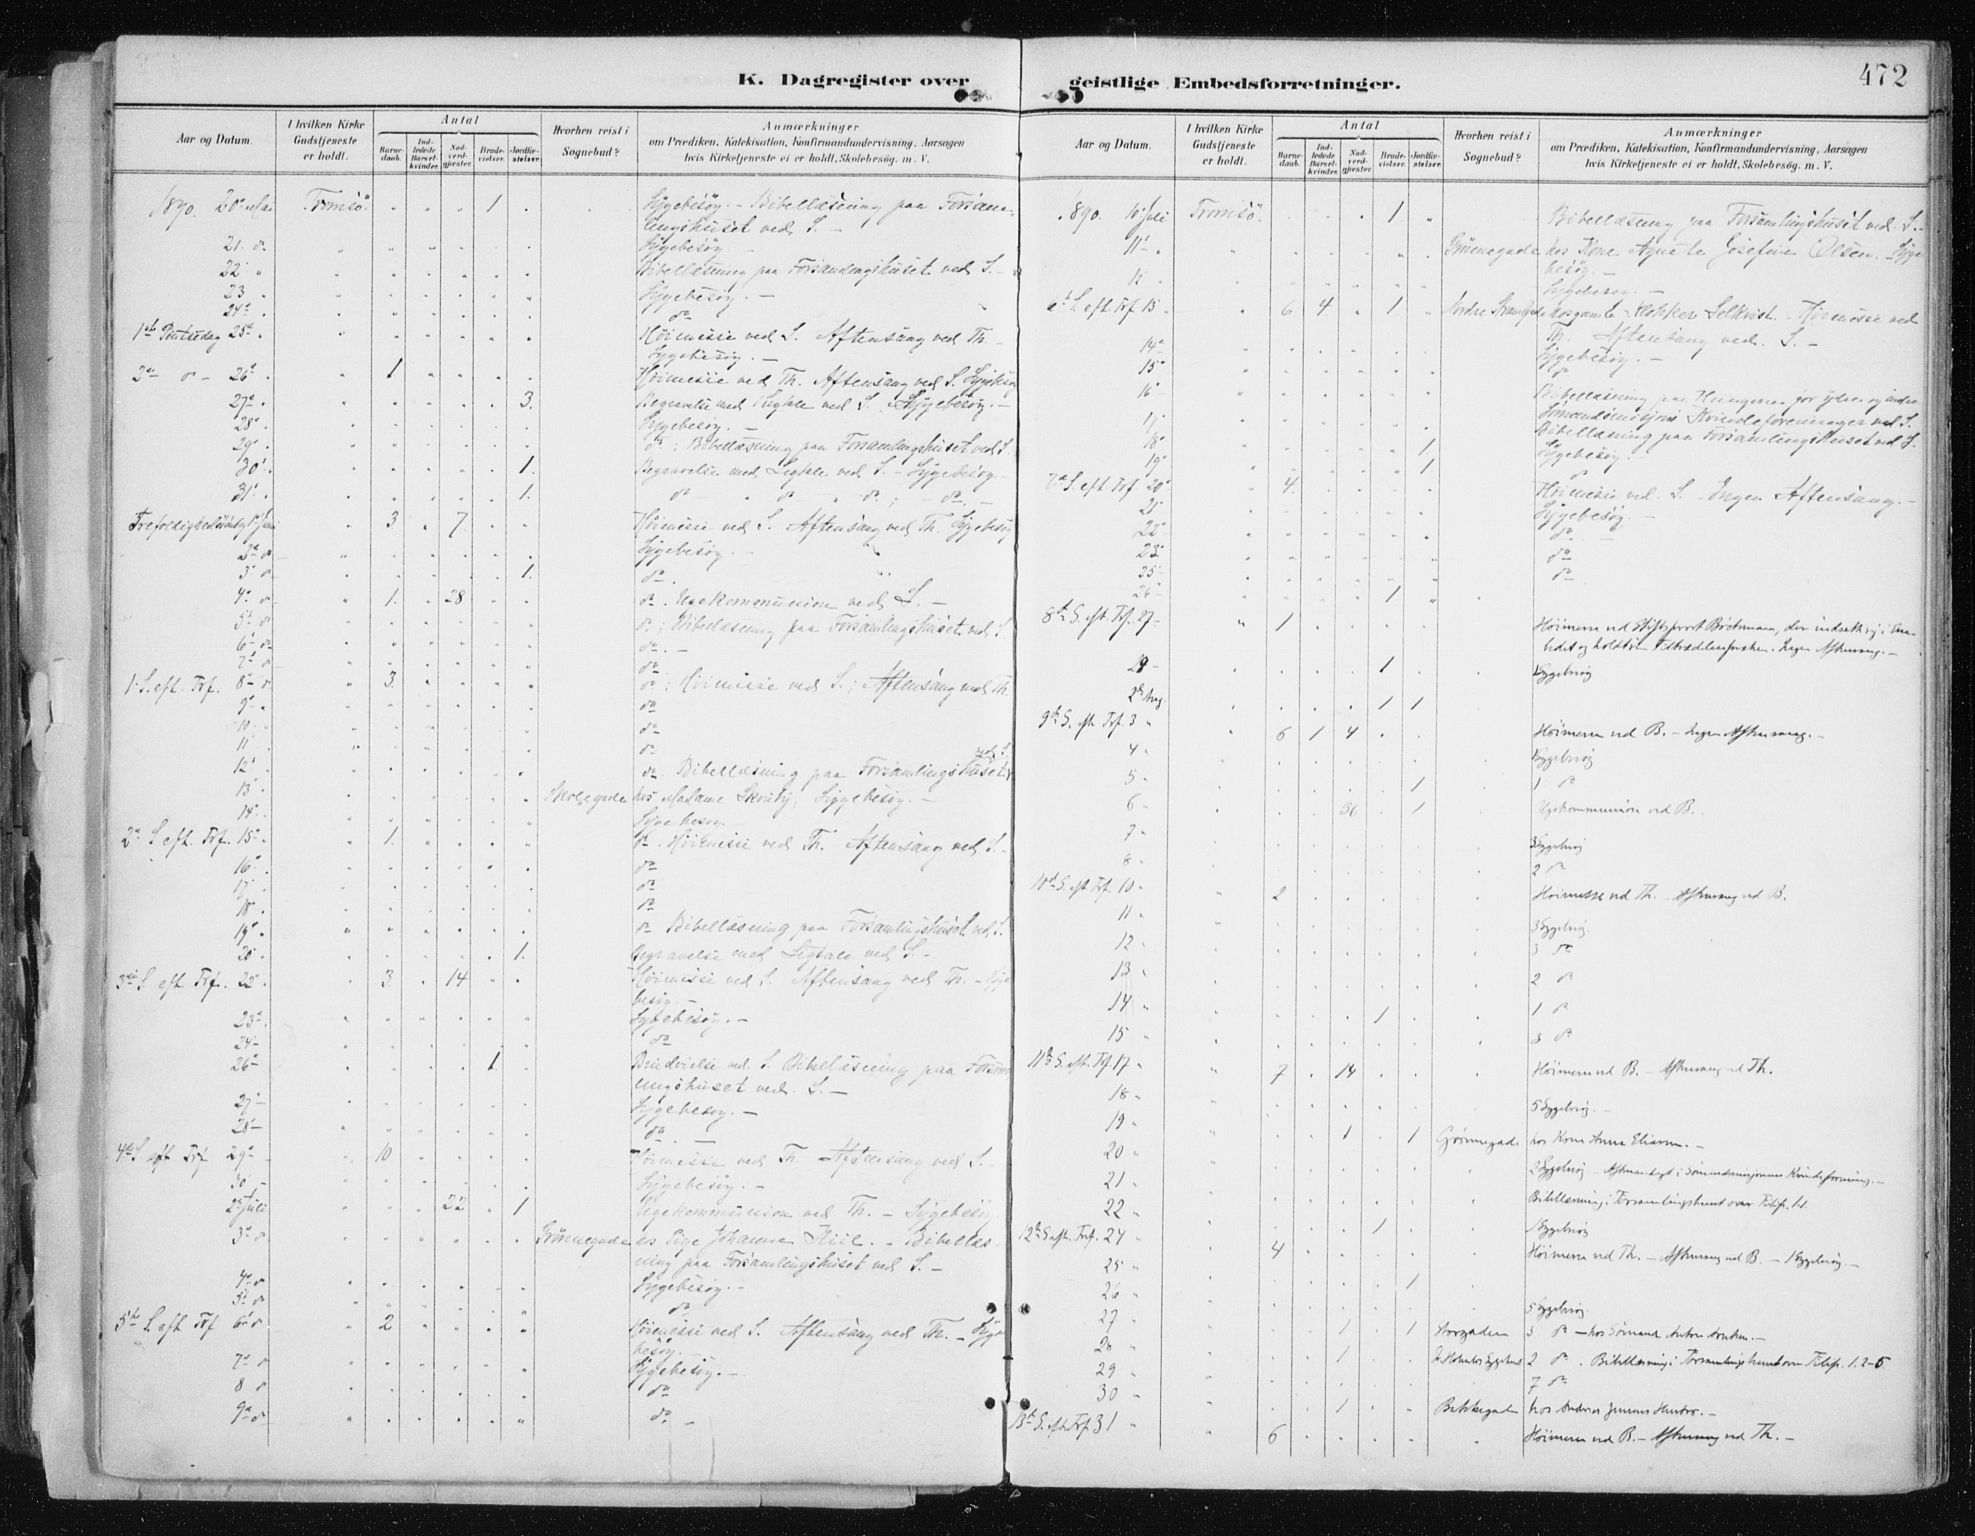 K. Dagregister over
Aar og Datum.
I hvilken Kirke Gudstjeneste er holdt.
Antal
Barnedaab.
Indledede Barselkvinder.
Nadverdgjæster.
Brudevielser.
Jordfæstelser.
Hvorhen reist i Sognebud?
Anmærkninger
om Prædiken, Katekisation, Konfirmandundervisning, Aarsagen
hvis Kirketjeneste ei er holdt, Skolebesøg. m. V.
1890. 20de Mai Tromsö. 1 Sygebesög. - Bibellæsning paa Forsam-
lingshuset ved S. -
21 do Sygebesög. -
22 " Bibellæsning paa Forsamlingshuset ved S. -
23 Sygebesög. -
24de do
1ste Pintsedag 25de Høimesse ved S. Aftensang ved Th. -
Sygebesög. -
2den do - 26de 1 Høimesse ved Th. Aftensang ved S. Sygebesög
27de 3. Begravelse med Ligtale ved S. Sygebesög. -
28de Sygebesög. -
29de do; Bibellæsning paa Forsamlingshuset ved S.
30de 1. Begravelse med Ligtale ved S. - Sygebesög. -
31de 1. do - " do - " do; - do. -
Trefoldighedssöndag 1ste Juni 3 7 Høimesse ved S. Aftensang ved Th. Sygebesög
2den do Sygebesög. -
3de do 1. do.
4de do 1. 28 do. Ugekommunion ved S. -
5te do do; Bibellæsning paa Forsamlingshuset ved S.
6te do do. -
7de do do
1. S. eft. Trf. 8de do 3 do; Høimesse ved S.; Aftensang ved Th.
9de do
10 do
11 do
ved S.
12te do. Bibellæsning paa Forsamlingshuset
13 Skolegade hos Madame ; Sygebesög. -
14de Sygebesög.
2den S. eft. Trf. 15de 1. do. Høimesse ved Th. Aftensang ved S. -
16de do
17 do
18 do
19de do Bibellæsning paa Forsamlingshuset ved S.
20de 1. Begravelse med Ligtale ved S. -
3die S. eft. Trf. 22de 3. 14 Høimesse ved S. Aftensang ved Th. - Syge
besög. -
23de Sygebesög. -
24 - do
26de 1. Brudvielse ved S. Bibellæsning paa Forsam
lingshuset ved S. -
27 - Sygebesög. -
28 - do. -
4de S. eft Trf 29de 10 Høimesse ved Th. Aftensang ved S. -
30 - Sygebesög. -
2den Juli 22 1 Ugekommunion ved Th. - Sygebesög.
3de do Grönnegade hos Pige Johanna . - Bibellæs-
ning paa Forsamlingshuset ved S. -
4de do Sygebesög. -
5te do do
5te S. eft Trf 6te do 2 Høimesse ved S. Aftensang ved Th. - Syge
besög. -
7de do Sygebesög. -
8 do do
9de do do. -
geistlige Embedsforretninger.
472
Aar og Datum.
I hvilken Kirke Gudstjeneste er holdt.
Antal
Barnedaab.
Indledede Barselkvinder.
Nadverdgjæster.
Brudevielser.
Jordfæstelser.
Hvorhen reist i Sognebud?
Anmærkninger
om Prædiken, Katekisation, Konfirmandundervisning, Aarsagen
hvis Kirketjeneste ei er holdt, Skolebesøg. m. V.
1890. 10 Juli Tromsö. 1 Bibellæsning paa Forsamlingshuset ved S. -
11te Grönnegade hos Kone Agnete Josefine Olsen. - Syge
besög. -
12 Sygebesög. -
6te S. eft Trf 13 6 4 1 Nordre Strandgade hos gamle Klokker . - Høimesse ved
Th. Aftensang ved. S. -
14de Sygebesög. -
15de do
16de Bibellæsning paa for ydre og indre
Sömandsmisjons Kvindeforeninger ved S.
17 Bibellæsning paa Forsamlingshuset ved S.
18de 1 Sygebesög. -
19de 1 do
7de S. eft Trf. 20de 4 Høimesse ved. S. - Ingen Aftensang. -
21de Sygebesög. -
22de do -
23de do
25 - do
26 - 1
8de S. eft. Trf. 27 - 1 Høimesse ved Stiftsprovst Böckman, der indsatte sig i Em-
bedet og holdt sin Tiltrædelsespræken. Ingen Aftensang. -
29 - 1 1 Sygebesög
2den Aug 1 1
9de S. eft. Trf. 3 6 1 4 Høimesse ved B. - Ingen Aftensang. -
4 1 Sygebesög
5 1 1 do
6 36 1 Ugekommunion ved B.
7 3 Sygebesög
8 2 do
10de S. eft Trf. 10 2 Høimesse ved Th. - Aftensang ved B.
11 3 Sygebesög.
12 3 do
13 2 do
14 1 1 do
15 3 do
11te S. eft. Trf. 17 7 14 Høimesse ved B. - Aftensang ved Th.
18 5 Sygebesög. -
19 1 1 Grönnegade hos Kone Anna . -
20 2 Sygebesög - i Sömandsmisjonens Kvindeforening. -
21 Bibellæsning i Forsamlingshuset over Filip. 1.1.
22 1 1 Sygebesög
12te S. eft. Trf. 24 4 Høimesse ved Th. - Aftensang ved B. - 1 Sygebesög. -
25 1
26 5 Sygebesög.
27 1 1 3 do - hos Sömand Anton . -
28 1 2 do. Bibellæsning i Forsamlingshuset over Filip. 1. 2-5
29 7 do
30 1 hos Andreas . -
13de S. eft. Trf. 31 6 Høimesse ved B. - Aftensang ved Th. -